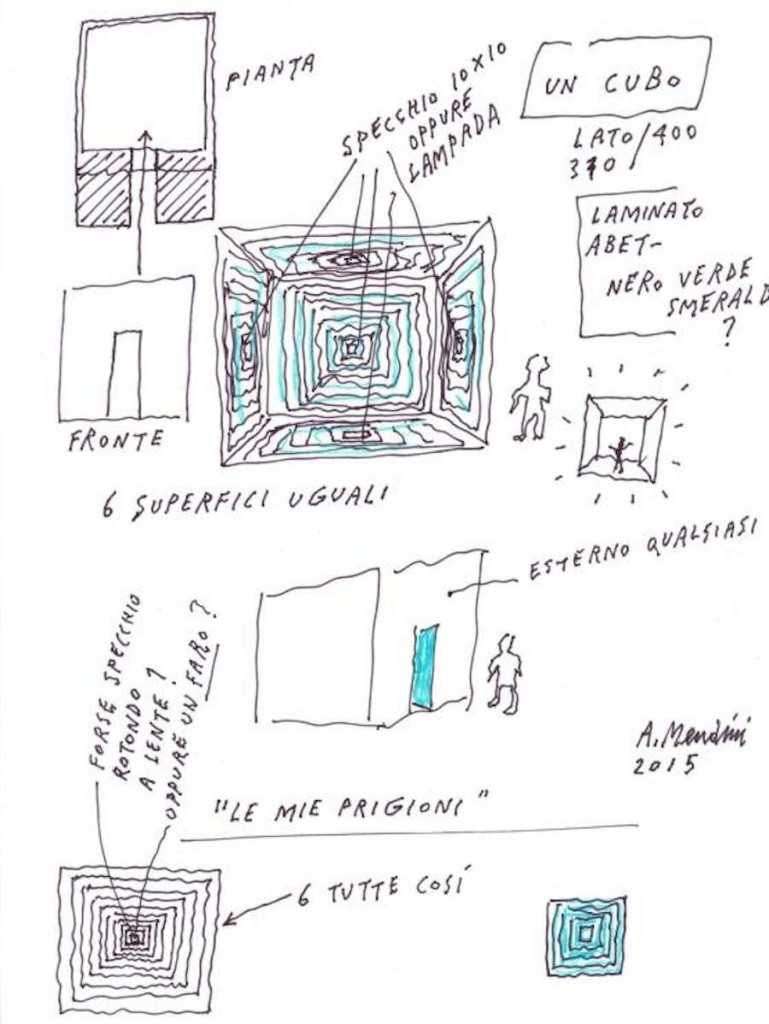 PIANTA
SPECCHIO 10X10
OPPURE
LAMPADA
UN CUBO
LATO/400
370
LAMINATO
ABET-
NERO VERDE
SMERALD
?
FRONTE
6 SUPERFICI UGUALI
ESTERNO QUALSIASI
FORSE SPECCHIO
ROTONDO
A LENTE?
OPPURE UN FARO?
A. Mendini
2015
"LE MIE PRIGIONI"
6 TUTTE COSÍ